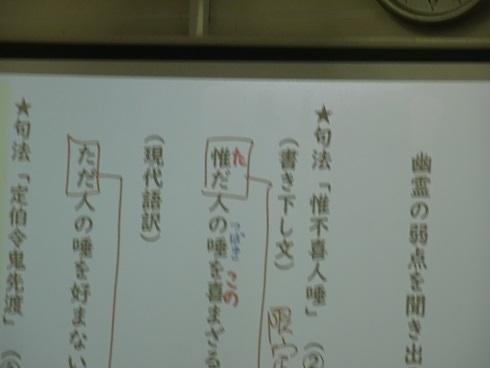 幽霊の弱点を聞き出
★句法「惟不喜人唾」(②
限定
(書き下し文)
惟だ人の唾を喜まざる
た
つばき
この
(現代語訳)
ただ人の唾を好まない
★句法「定伯令鬼先渡」